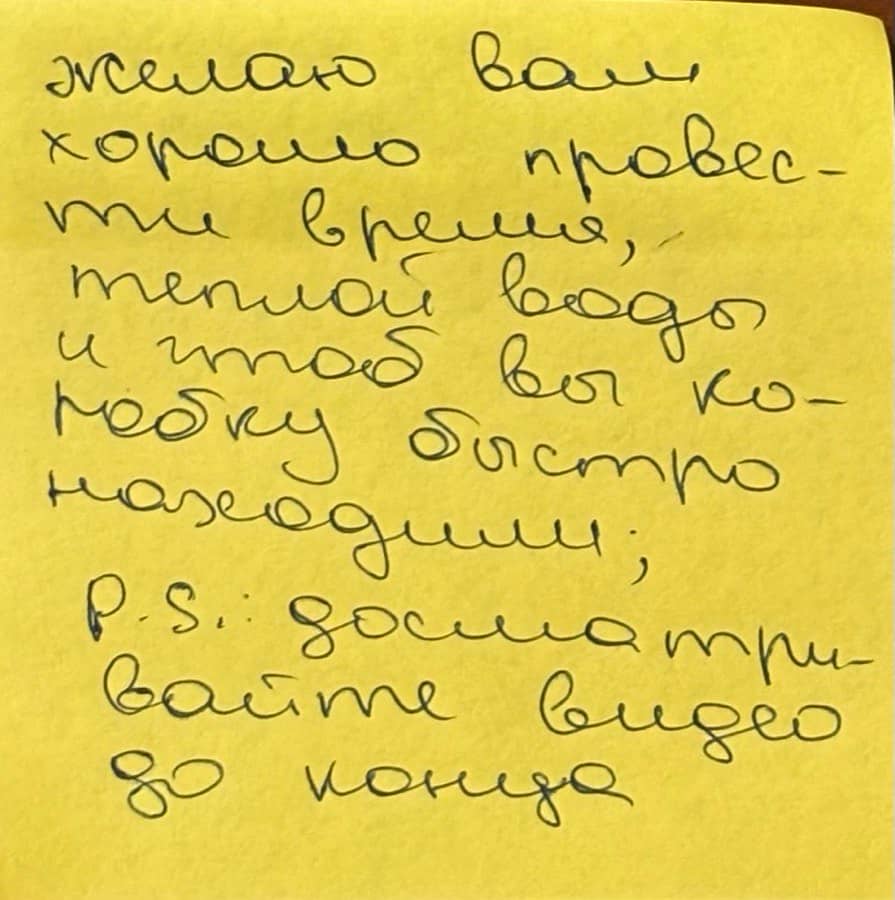 желаю вам
хорошо провес-
ти время,
теплой воды
и чтоб вы ко-
робку быстро
находили;
P.S.: досматри-
вайте видео
до конца